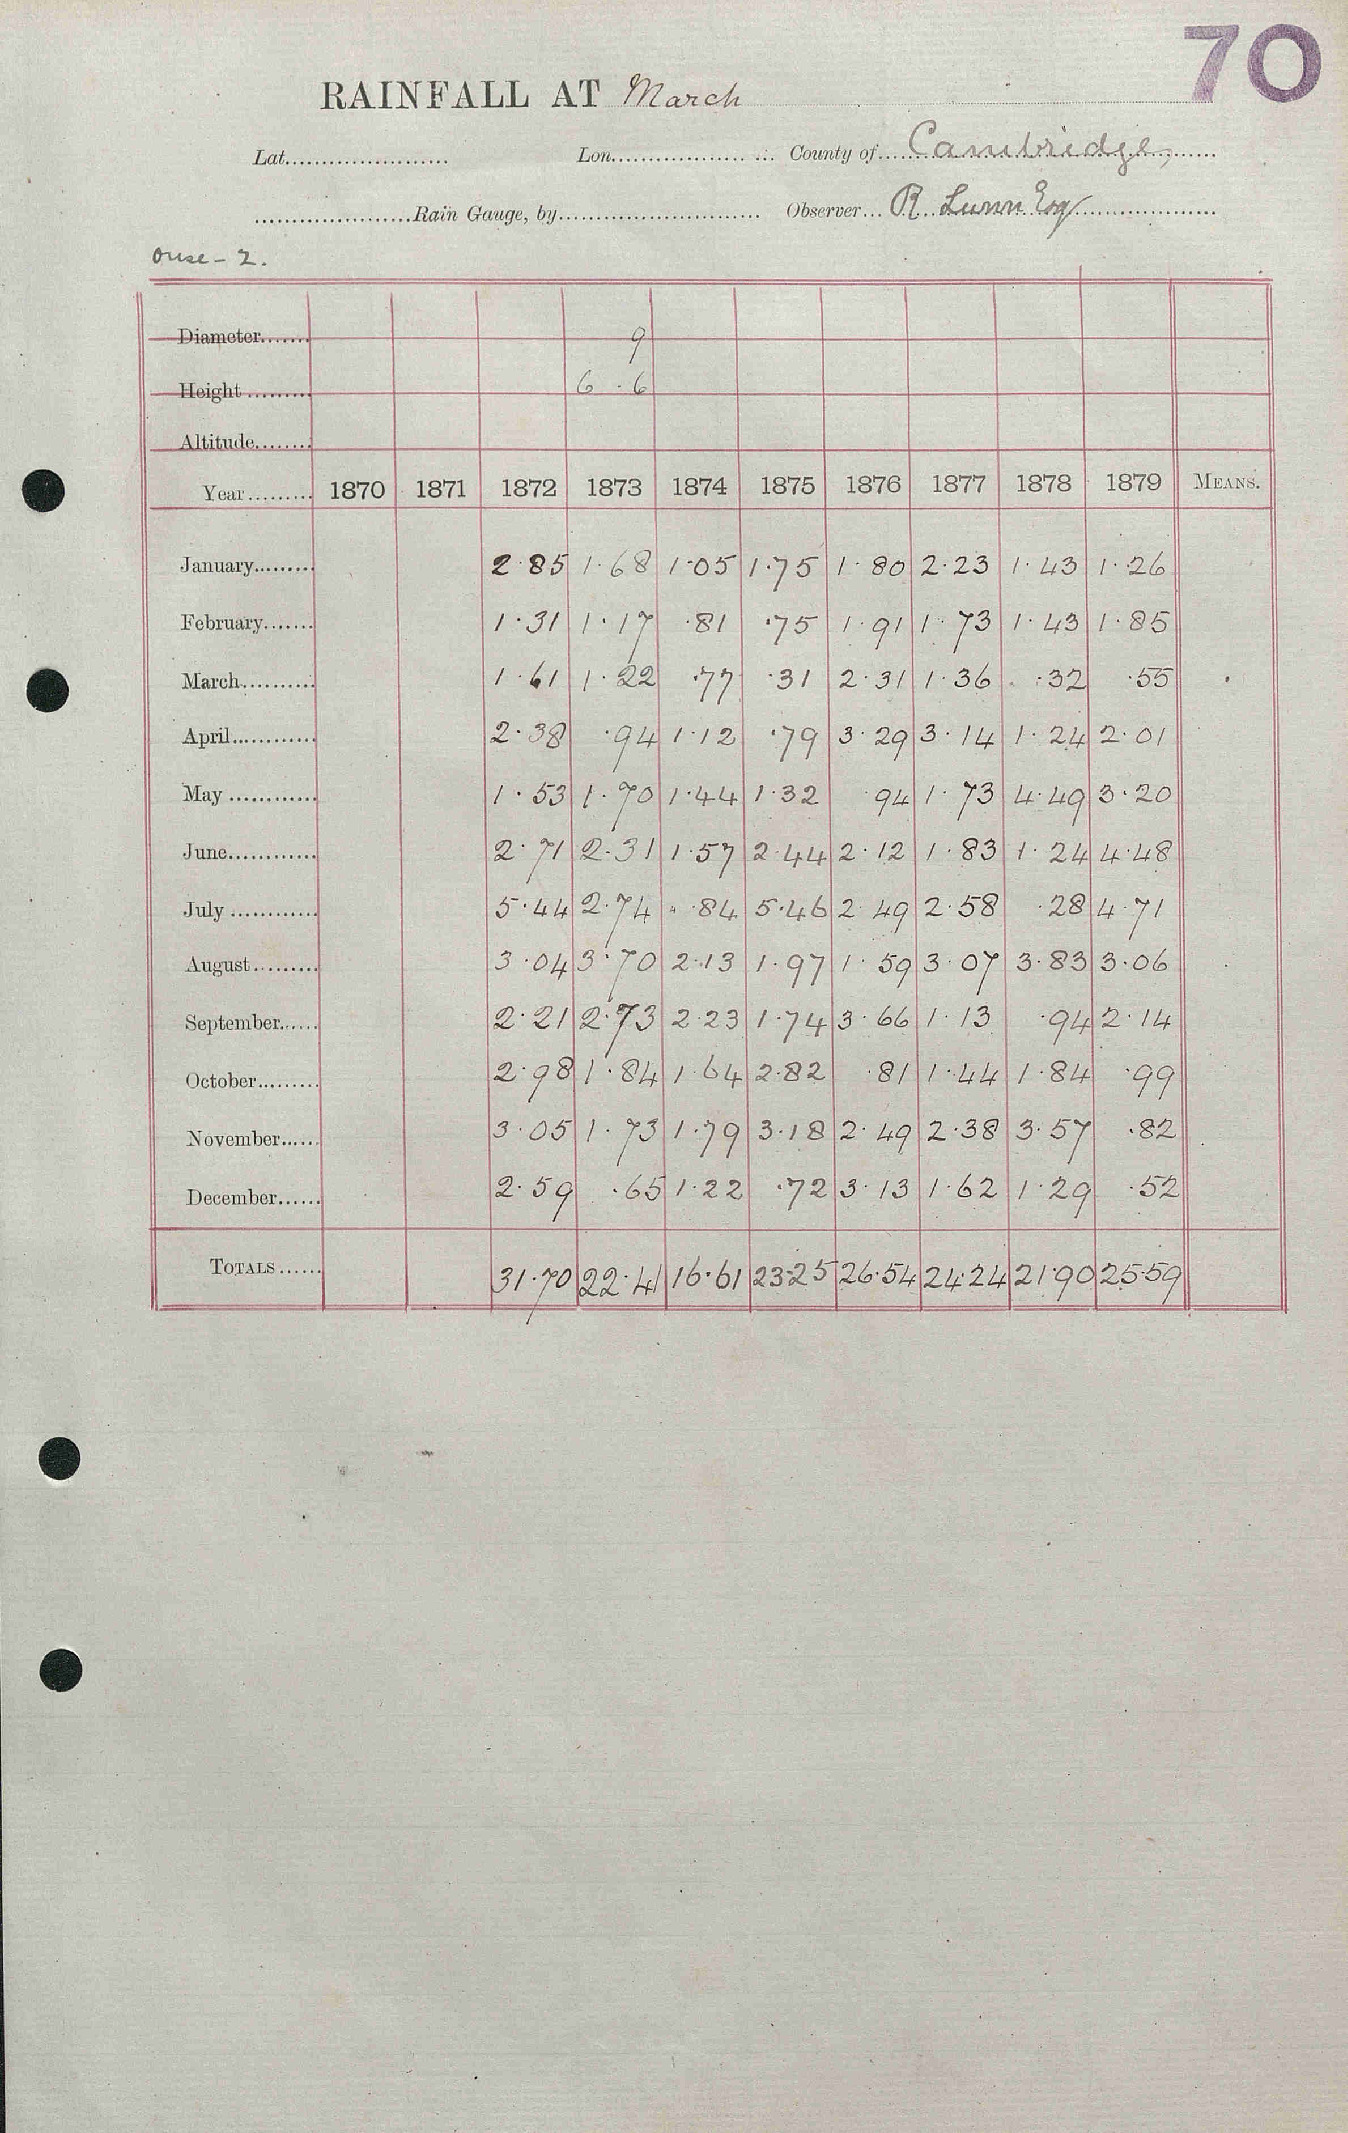 70
RAINFALL AT March
Lat...................... Lon.................. ... County of....Cambridge,......
.....................Rain Gauge, by........................... Observer...R. Lunn Esq..................
Ouse - 2.
Diameter....... 9
Height ......... 6 . 6
Altitude........
Year......... 1870 1871 1872 1873 1874 1875 1876 1877 1878 1879 MEANS.
January......... 2.85 1.68 1.05 1.75 1.80 2.23 1.43 1.26
February....... 1.31 1.17 .81 .75 1.91 1.73 1.43 1.85
March.......... 1.61 1.22 .77 .31 2.31 1.36 .32 .55
April............ 2.38 .94 1.12 .79 3.29 3.14 1.24 2.01
May ............ 1.53 1.70 1.44 1.32 .94 1.73 4.49 3.20
June............ 2.71 2.31 1.57 2.44 2.12 1.83 1.24 4.48
July ............ 5.44 2.74 .84 5.46 2.49 2.58 .28 4.71
August......... 3.04 3.70 2.13 1.97 1.59 3.07 3.83 3.06
September...... 2.21 2.73 2.23 1.74 3.66 1.13 .94 2.14
October......... 2.98 1.84 1.64 2.82 .81 1.44 1.84 .99
November...... 3.05 1.73 1.79 3.18 2.49 2.38 3.57 .82
December...... 2.59 .65 1.22 .72 3.13 1.62 1.29 .52
TOTALS...... 31.70 22.41 16.61 23.25 26.54 24.24 21.90 25.59